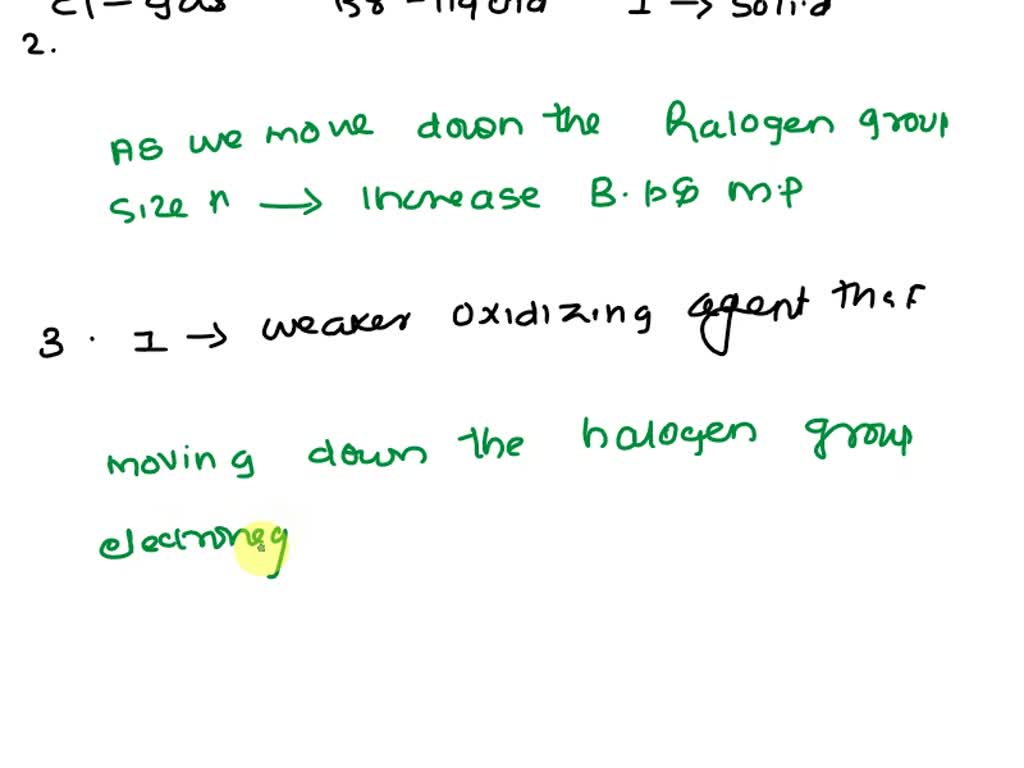 Cl - gas Br - liquid I → solid
2.
As we move down the halogen group
size ↑ → Increase B.p & m.p
3. I → weaker oxidizing agent than F
moving down the halogen group
electroneg